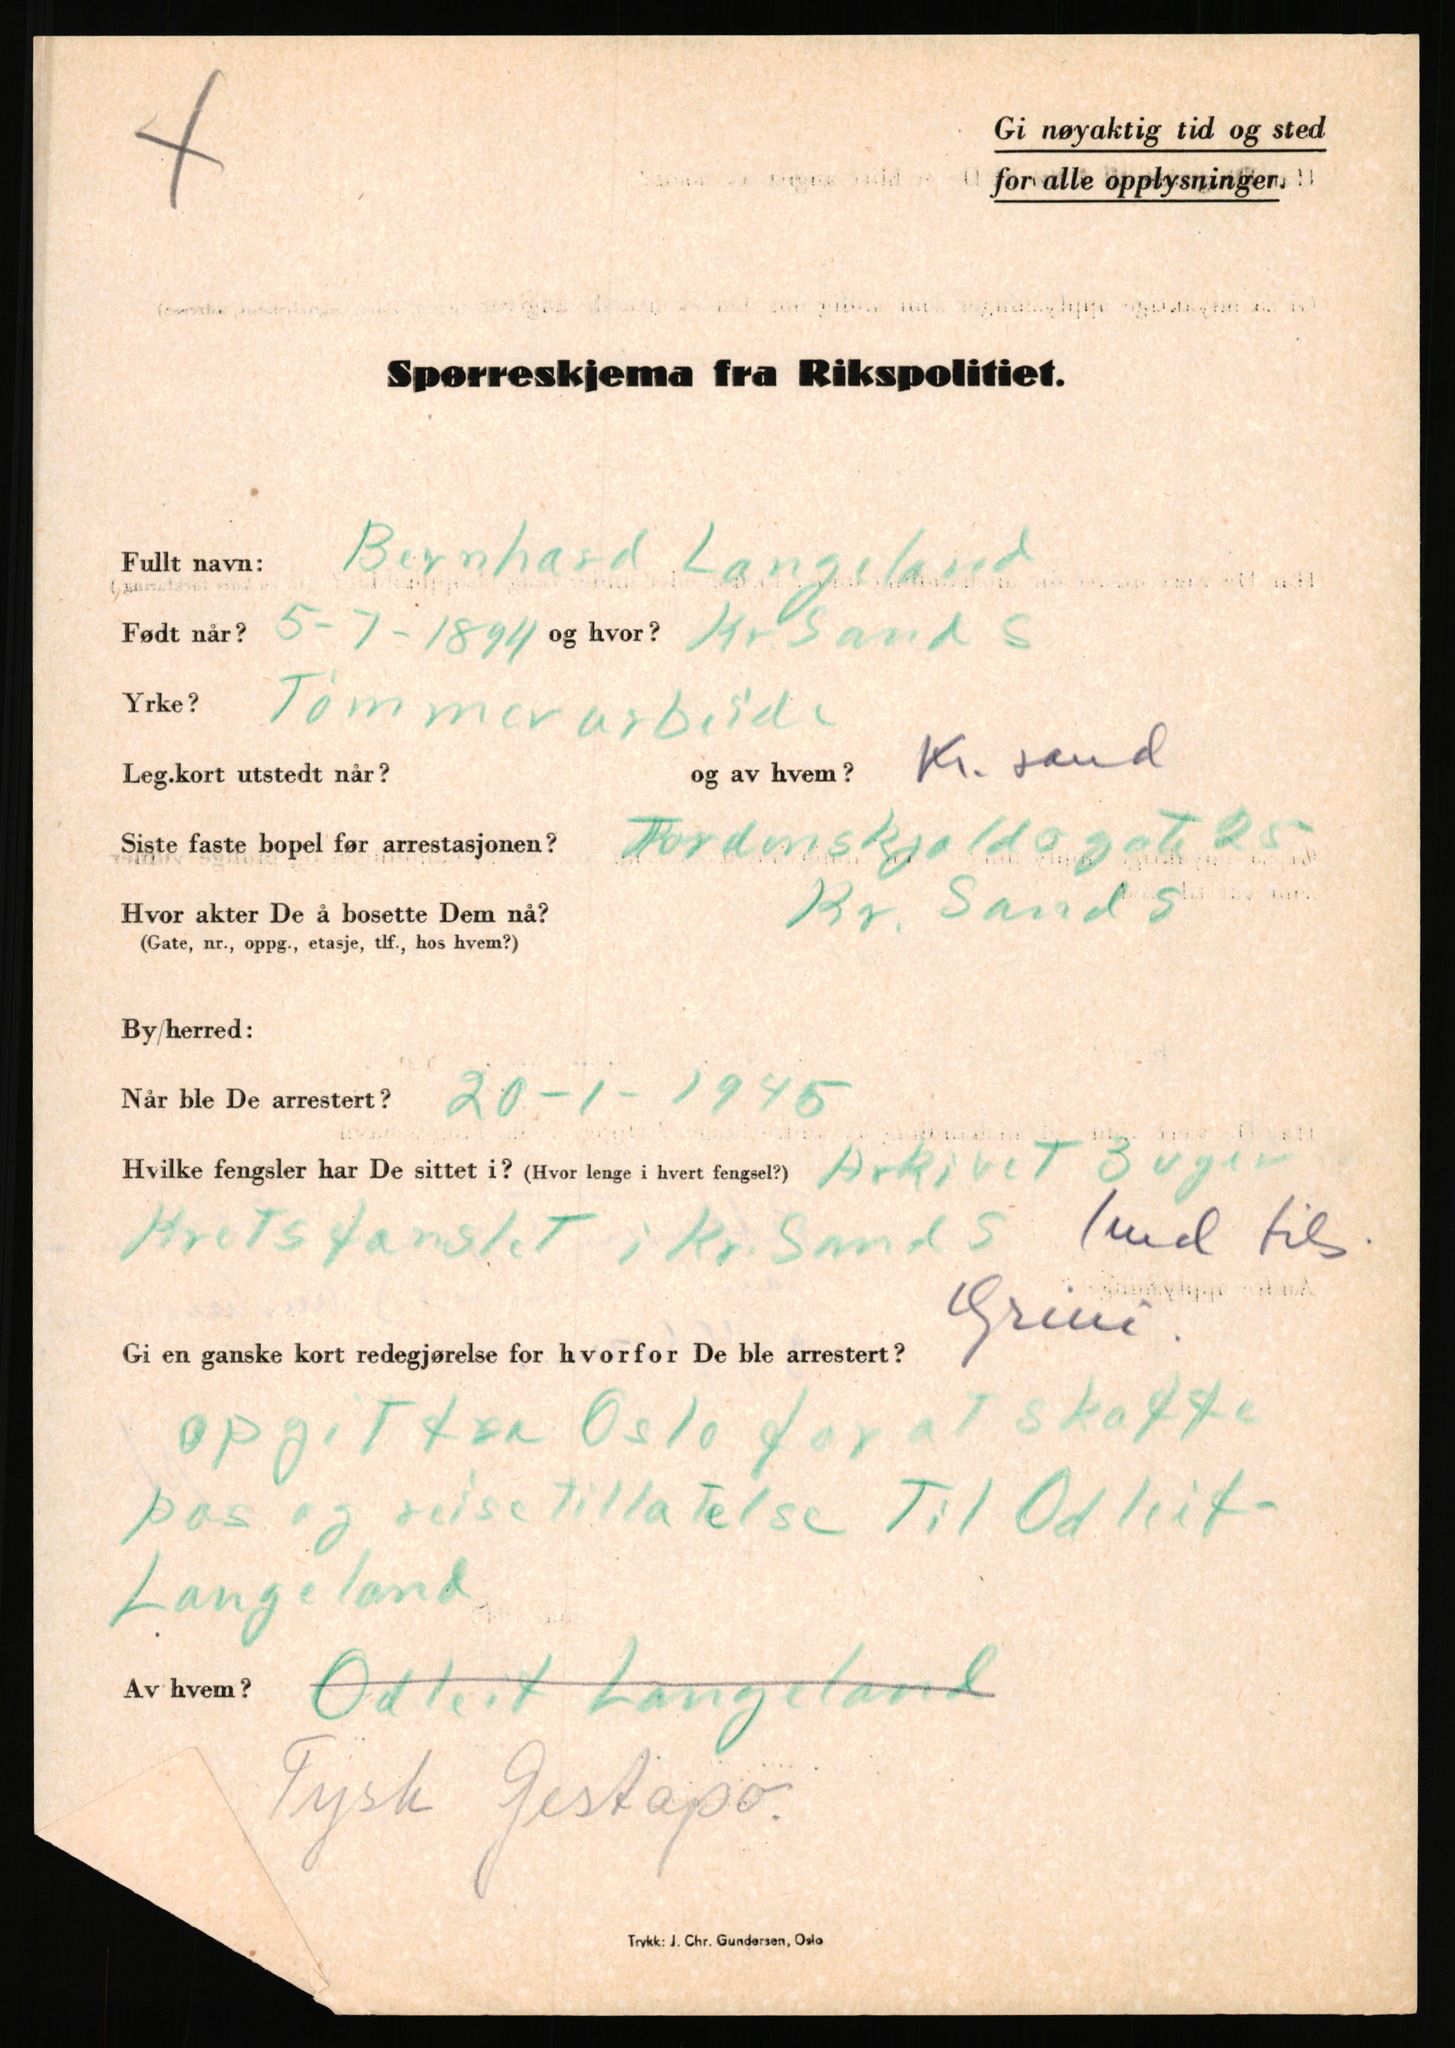 4
Gi nøyaktig tid og sted
for alle opplysninger.
Spørreskjema fra Rikspolitiet.
Fullt navn: Bernhard Langeland
Født når? 5-7-1894 og hvor? Kr. Sand S
Yrke? Tømmerarbeide
Leg.kort utstedt når? og av hvem? Kr. sand
Siste faste bopel før arrestasjonen? Tordenskjolds gate 25
Hvor akter De å bosette Dem nå? Kr. Sand S
(Gate, nr., oppg., etasje, tlf., hos hvem?)
By/herred:
Når ble De arrestert? 20-1-1945
Hvilke fengsler har De sittet i? (Hvor lenge i hvert fengsel?) Arkivet 3 uger
Kretsfanslet i Kr. Sand S 1 md tils.
Grini.
Gi en ganske kort redegjørelse for hvorfor De ble arrestert?
opgit fra Oslo for at skaffe
pas og reisetillatelse Til Odleif
Langeland
Av hvem? Odleif Langeland
Tysk Gestapo.
Trykk: J. Chr. Gundersen, Oslo